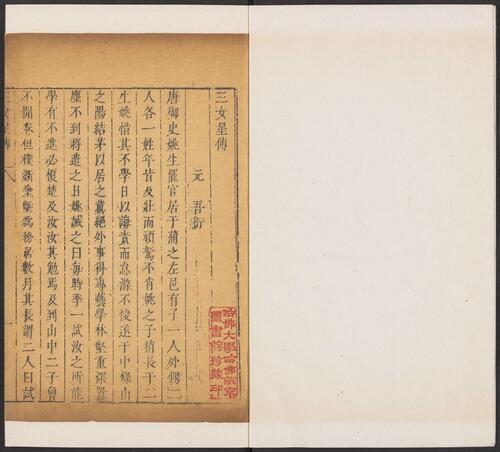 三女星傳
元 吾衍
唐御史姚生罷官居于蒲之左邑有子一人外甥二
人各一姓年皆及壯而頑駑不肖姚之子稍長于二
生姚惜其不學日以誨責而怠游不悛遂于中條山
之陽結茅以居之冀絕外事得專藝學林壑重深囂
塵不到將遣之日姚誡之曰每時季一試汝之所能
學有不進必檟楚及汝汝其勉焉及到山中二子曾
不開卷但樸斲塗墍為務居數月其長謂二人曰試
三女星傳 一
哈佛大學哈佛燕京
圖書館珍藏印